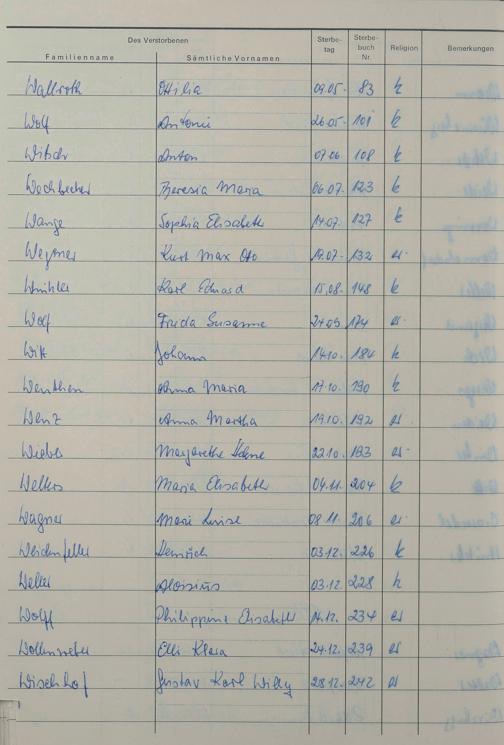 Des Verstorbenen
Familienname Sämtliche Vornamen Sterbetag Sterbebuch Nr. Religion Bemerkungen
Wallroth Ottilia 09.05. 83 k
Wolf Antonie 26.05. 101 k
Witsch Anton 07.06 108 k
Wechbecher Theresia Maria 06.07. 123 k
Wange Sophia Elisabeth 14.07. 127 k
Wegner Kurt Max Oto 19.07. 132 ev.
Winkler Karl Eduard 15.08. 148 k
Wolf Frieda Susanne 24.09 174 ev.
Witt Johann 14.10. 184 k
Wenthen Anna Maria 17.10. 190 k
Wenz Anna Martha 19.10. 192 ev
Wieber Margarethe Helene 22.10. 193 ev.
Welters Maria Elisabeth 04.11. 204 k
Wagner Marie Luise 08 11. 206 ev
Weidenfeller Heinrich 03.12. 226 k
Weller Aloisius 03.12. 228 k
Wolff Philippine Elisabeth 14.12. 234 ev
Wollenweber Elli Klara 24.12. 239 ev
Wischhof Gustav Karl Willy 28.12. 242 ev